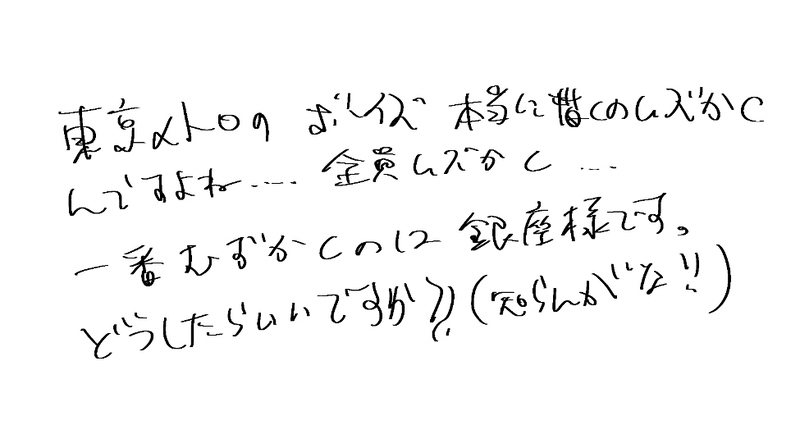 東京メトロの ボーイズ 本当に描くのムズかし
んですよね.... 全員ムズかし ...
一番むずかしのは 銀座様です。
どうしたらいいですか?!(知らんがな!!)